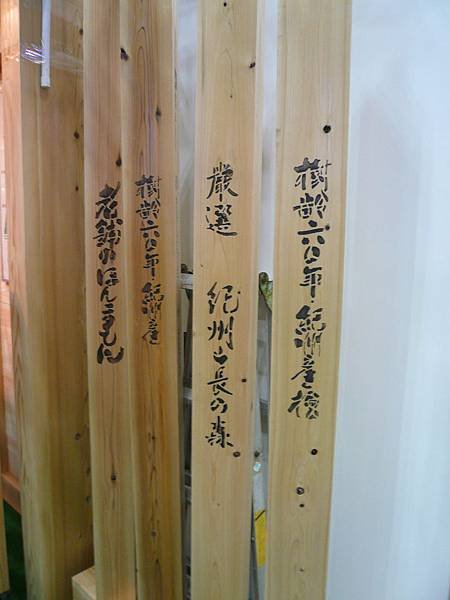 樹齢六〇年・紀州産檜
厳選 紀州山長の森
樹齢六〇年・紀州産
老舗のほんまもん